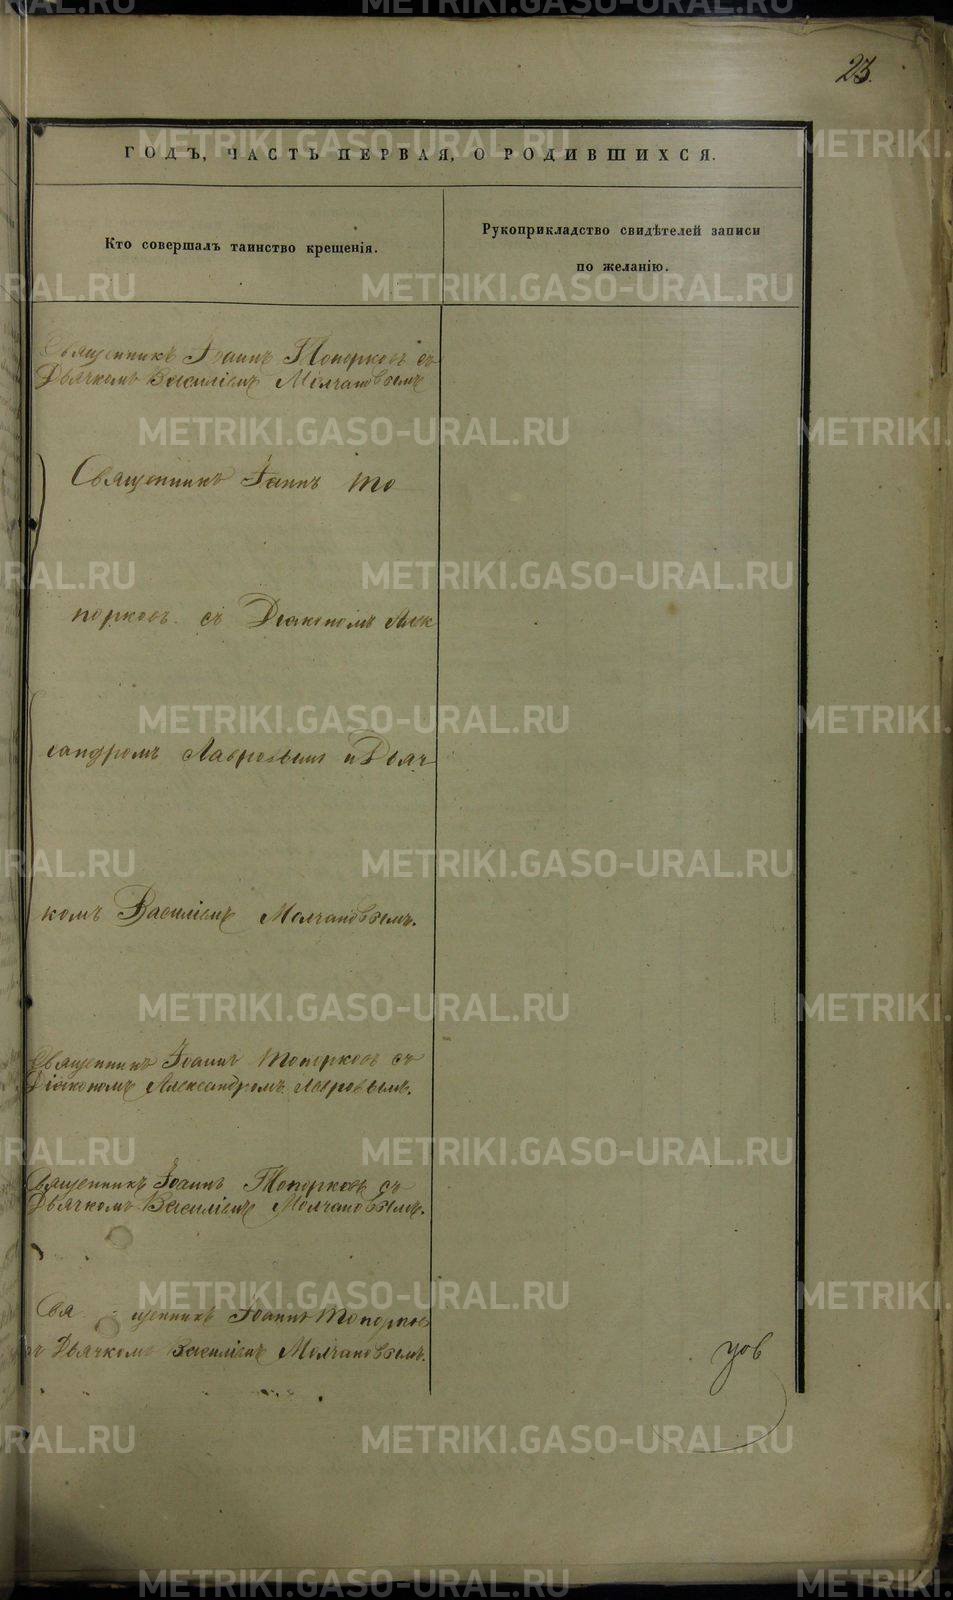 23.
ГОДЪ, ЧАСТЬ ПЕРВАЯ, О РОДИВШИХСЯ.
Кто совершалъ таинство крещенія.
Рукоприкладство свидѣтелей записи
по желанію.
Священникъ Іоаннъ Топорковъ съ
Дьячкомъ Василіемъ Молчановымъ
Священникъ Іоаннъ То
порковъ съ Діакономъ Алек
сандромъ Лавровымъ и Дьяч
комъ Василіемъ Молчановымъ.
Священникъ Іоаннъ Топорковъ съ
Діакономъ Александромъ Лавровымъ.
Священникъ Іоаннъ Топорковъ съ
Дьячкомъ Василіемъ Молчановымъ.
Священникъ Іоаннъ Топорков
съ Дьячкомъ Василіемъ Молчановымъ.
уов
METRIKI.GASO-URAL.RU